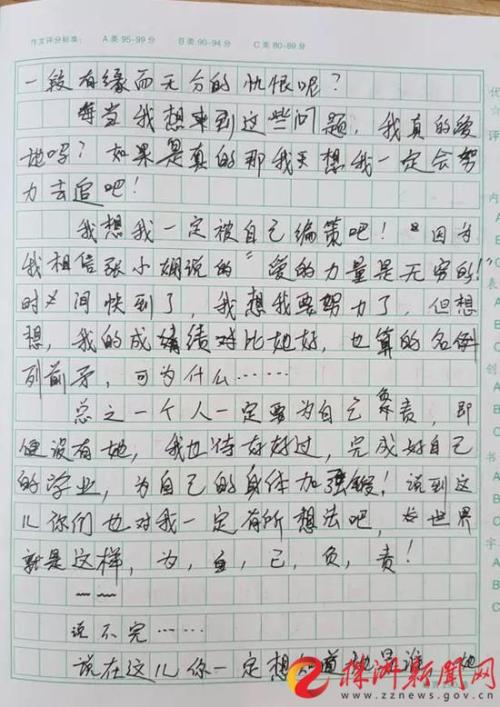 作文评分标准： A类 95-99分 B类 90-94分 C类 80-89分
一段有缘而无分的仇恨呢？
每当我想来到这些问题，我真的爱
她吗？如果是真的那我天想我一定会努
力去追吧！
我想我一定被自己编策吧！“因为
我相信张小娴说的“爱的力量是无穷的！
时间快到了，我想我要努力了，但想
想，我的成绩对比她好，也算的名例
列前矛，可为什么……
总之一个人一定要为自己负责，即
便没有她，我也待好好过，完成好自己
的学业，为自己的身体加强锻！说到这
儿你们也对我一定有所想法吧，世界
就是这样，为，自，己，负，责！
说不完……
说在这儿你一定想知道她是谁，她
代
评
内
A
B
C
表
A
B
C
创
A
B
C
书
A
B
C
字
A
B
C
株洲新闻网
www.zznews.gov.cn